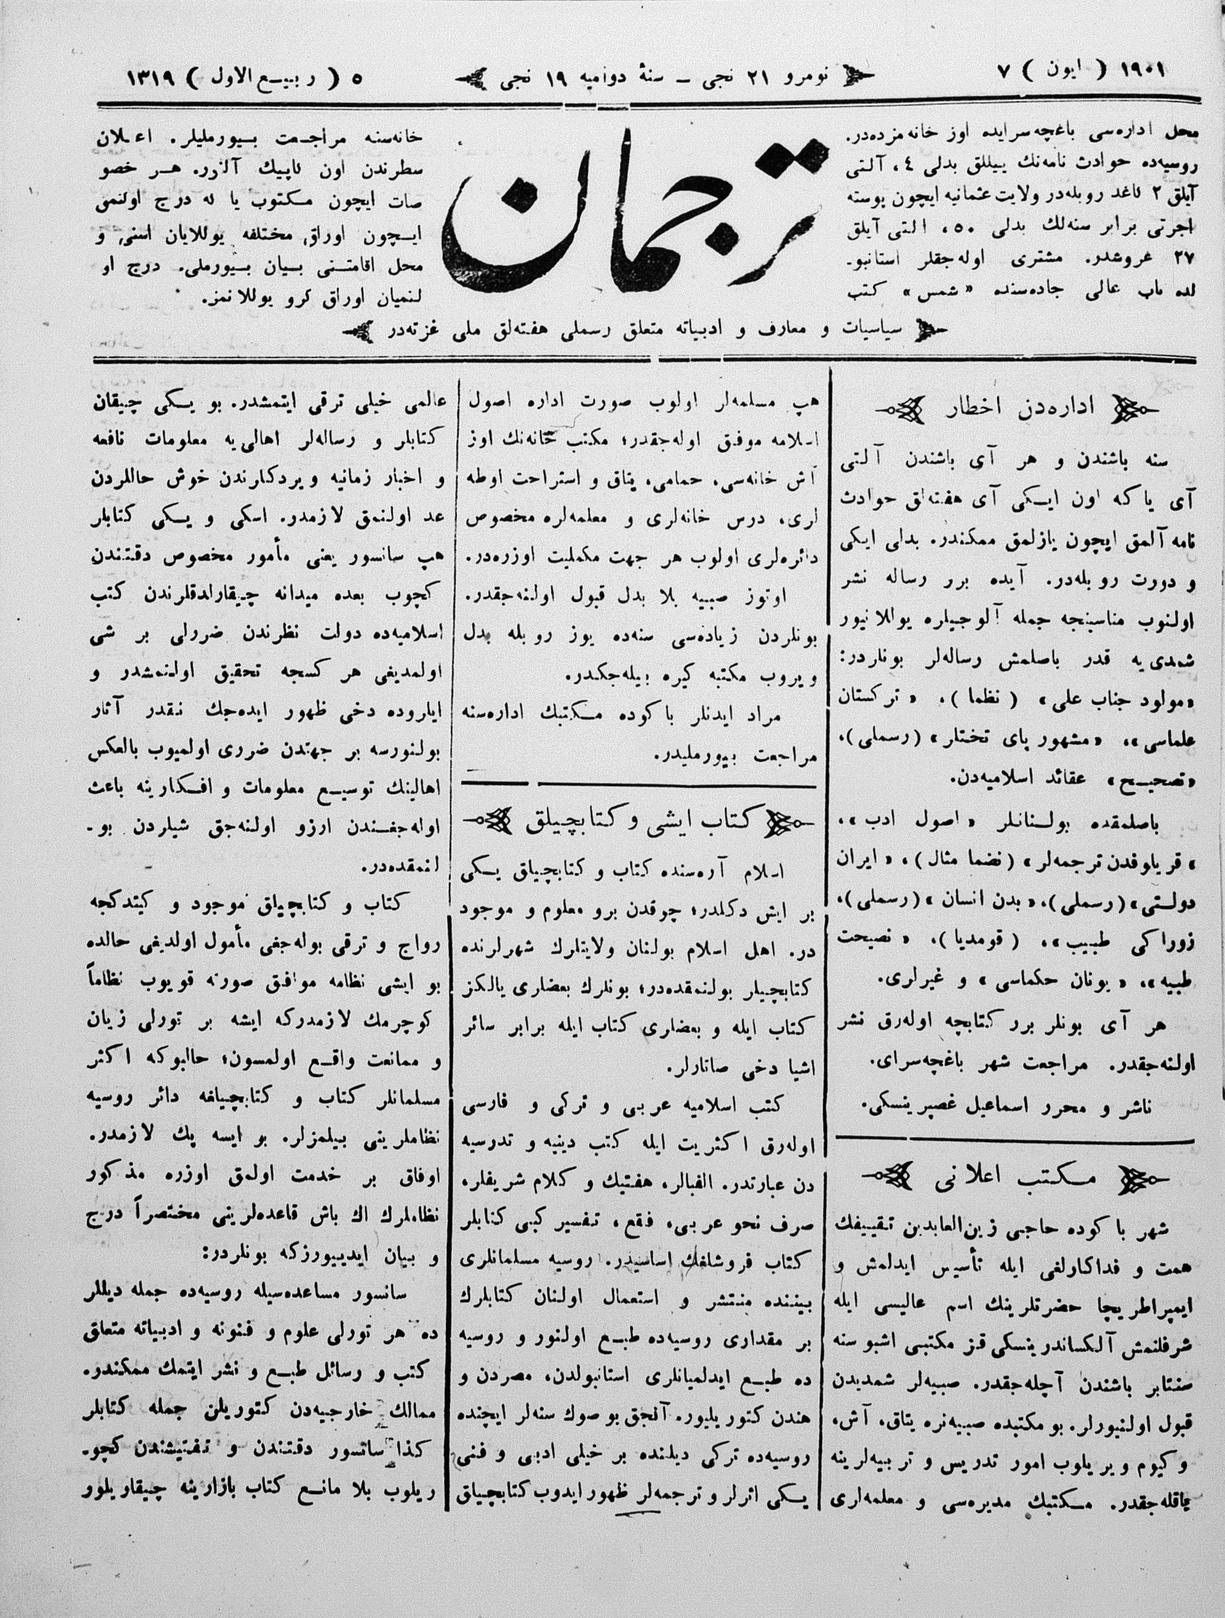 ١٩٠١ ( ايون ) ٧
نومرو ٢١ نجى ــ سنۀ دواميه ١٩ نجى
٥ ( ربيع الاول ) ١٣١٩
محل اداره‌سى باغچه‌سرايده اوز خانه‌مزده‌در.
روسيه‌ده حوادث نامه‌نك ييللق بدلى ٤، آلتى
آيلق ٢ كاغد روبله‌در ولايت عثمانيه ايچون بوسته
اجرتى برابر سنه‌لك بدلى ٥٠، التى آيلق
٢٧ غروشدر. مشترى اوله‌جقلر استانبو-
لده باب عالى جاده‌سنده «شمس» كتب
ترجمان
خانه‌سنه مراجعت بيورمليلر. اعلان
سطرندن اون كاپيك آلنور. هر خصو
صات ايچون مكتوب يا كه درج اولنمق
ايچون اوراق مختلفه يوللايان اسنى و
محل اقامتنى بيان بيورملى. درج او
لنميان اوراق كرو يوللانمز.
سياسيات و معارف و ادبياته متعلق رسملى هفته‌لق ملى غزته‌در
اداره‌دن اخطار
سنه باشندن و هر آى باشندن آلتى
آى ياكه اون ايكى آى هفته‌لق حوادث
نامه آلمق ايچون يازلمق ممكندر. بدلى ايكى
و دورت روبله‌در. آيده برر رساله نشر
اولنوب مناسبنجه جمله آلوجيلره يوللانيور
شمدى‌يه قدر باصلمش رساله‌لر بونلردر:
«مولود جناب على» (نظما)، «تركستان
علماسى»، «مشهور پاى تختلر» (رسملى)،
«تصحيح» عقائد اسلاميه‌دن.
باصلمقده بولنانلر «اصول ادب»،
«قريلوفدن ترجمه‌لر» (نضما مثال)، «ايران
دولتى» (رسملى)، «بدن انسان» (رسملى)،
زوراكى طبيب»، (قومديا)، «نصيحت
طبيه»، «يونان حكماسى» و غيرلرى.
هر آى بونلر برر كتابچه اوله‌رق نشر
اولنه‌جقدر. مراجعت شهر باغچه‌سراى.
ناشر و محرر اسماعيل غصپرينسكى.
مكتب اعلانى
شهر باكوده حاجى زين‌العابدين تقييفك
همت و فداكارلغى ايله تأسيس ايدلمش و
ايمپراطريچا حضرتلرينك اسم عاليسى ايله
شرفلنمش آلكساندرينسكى قز مكتبى اشبو سنه
سنتابر باشندن آچله‌جقدر. صبيه‌لر شمديدن
قبول اولنيورلر. بو مكتبده صبيه‌نره يتاق، آش،
و كيوم ويريلوب امور تدريس و تربيه‌لرينه
باقله‌جقدر. مكتبك مديره‌سى و معلمه‌لرى
هپ مسلمه‌لر اولوب صورت اداره اصول
اسلامه موفق اوله‌جقدر؛ مكتب خانه‌نك اوز
آش خانه‌سى، حمامى، يتاق و استراحت اوطه
لرى، درس خانه‌لرى و معلمه‌لره مخصوص
دائره‌لرى اولوب هر جهت مكمليت اوزره‌در.
اوتوز صبيه بلا بدل قبول اولنه‌جقدر.
بونلردن زياده‌سى سنه‌ده يوز روبله بدل
ويروب مكتبه كيره بيله‌جكدر.
مراد ايدنلر باكوده مكتبك اداره‌سنه
مراجعت بيورمليدر.
كتاب ايشى و كتابچيلق
اسلام آره‌سنده كتاب و كتابچيلق يكى
بر ايش دكلدر؛ چوقدن برو معلوم و موجود
در. اهل اسلام بولنان ولايتلرك شهرلرنده
كتابچيلر بولنمقده‌در؛ بونلرك بعضلرى يالكز
كتاب ايله و بعضلرى كتاب ايله برابر سائر
اشيا دخى صاتارلر.
كتب اسلاميه عربى و تركى و فارسى
اوله‌رق اكثريت ايله كتب دينيه و تدرسيه
دن عبارتدر. الفبالر، هفتيك و كلام شريفلر،
صرف نحو عربى، فقع، تفسير كبى كتابلر
كتاب فروشلغك اساسيدر. روسيه مسلمانلرى
بيننده منتشر و استعمال اولنان كتابلرك
بر مقدارى روسيه‌ده طبع اولنور و روسيه
ده طبع ايدلميانلرى استانبولدن، مصردن و
هندن كتوريليور. آنجق بو صوك سنه‌لر ايچنده
روسيه‌ده تركى ديلنده بر خيلى ادبى و فنى
يكى اثرلر و ترجمه‌لر ظهور ايدوب كتابچيلق
عالمى خيلى ترقى ايتمشدر. بو يكى چيقان
كتابلر و رساله‌لر اهالى‌يه معلومات نافعه
و اخبار زمانيه ويردكلرندن خوش حاللردن
عد اولنمق لازمدر. اسكى و يكى كتابلر
هپ سانسور يعنى مأمور مخصوص دقتندن
كچوب بعده ميدانه چيقارلدقلرندن كتب
اسلاميه‌ده دولت نظرندن ضررلى بر شى
اولمديغى هر كسجه تحقيق اولنمشدر و
ايلروده دخى ظهور ايده‌جك نقدر آثار
بولنورسه بر جهتدن ضررى اولميوب بالعكس
اهالينك توسيع معلومات و افكارينه باعث
اوله‌جغندن ارزو اولنه‌جق شيلردن بو-
لنمقده‌در.
كتاب و كتابچيلق موجود و كيتدكجه
رواج و ترقى بوله‌جغى مأمول اولديغى حالده
بو ايشى نظامه موافق صورته قويوب نظاماً
كوچرمك لازمدركه ايشه بر تورلى زيان
و ممانعت واقع اولمسون؛ حالبوكه اكثر
مسلمانلر كتاب و كتابچيلغه دائر روسيه
نظاملرينى بيلمزلر. بو ايسه پك لازمدر.
اوفاق بر خدمت اولمق اوزره مذكور
نظاملرك اك باش قاعده‌لرينى مختصراً درج
و بيان ايدييورزكه بونلردر:
سانسور مساعده‌سيله روسيه‌ده جمله ديللر
ده هر تورلى علوم و فنونه و ادبياته متعلق
كتب و رسائل طبع و نشر ايتمك ممكندر.
ممالك خارجيه‌دن كتوريلن جمله كتابلر
كذا سانسور دقتندن و تفتيشندن كچو-
ريلوب بلا مانع كتاب بازارينه چيقاريلور